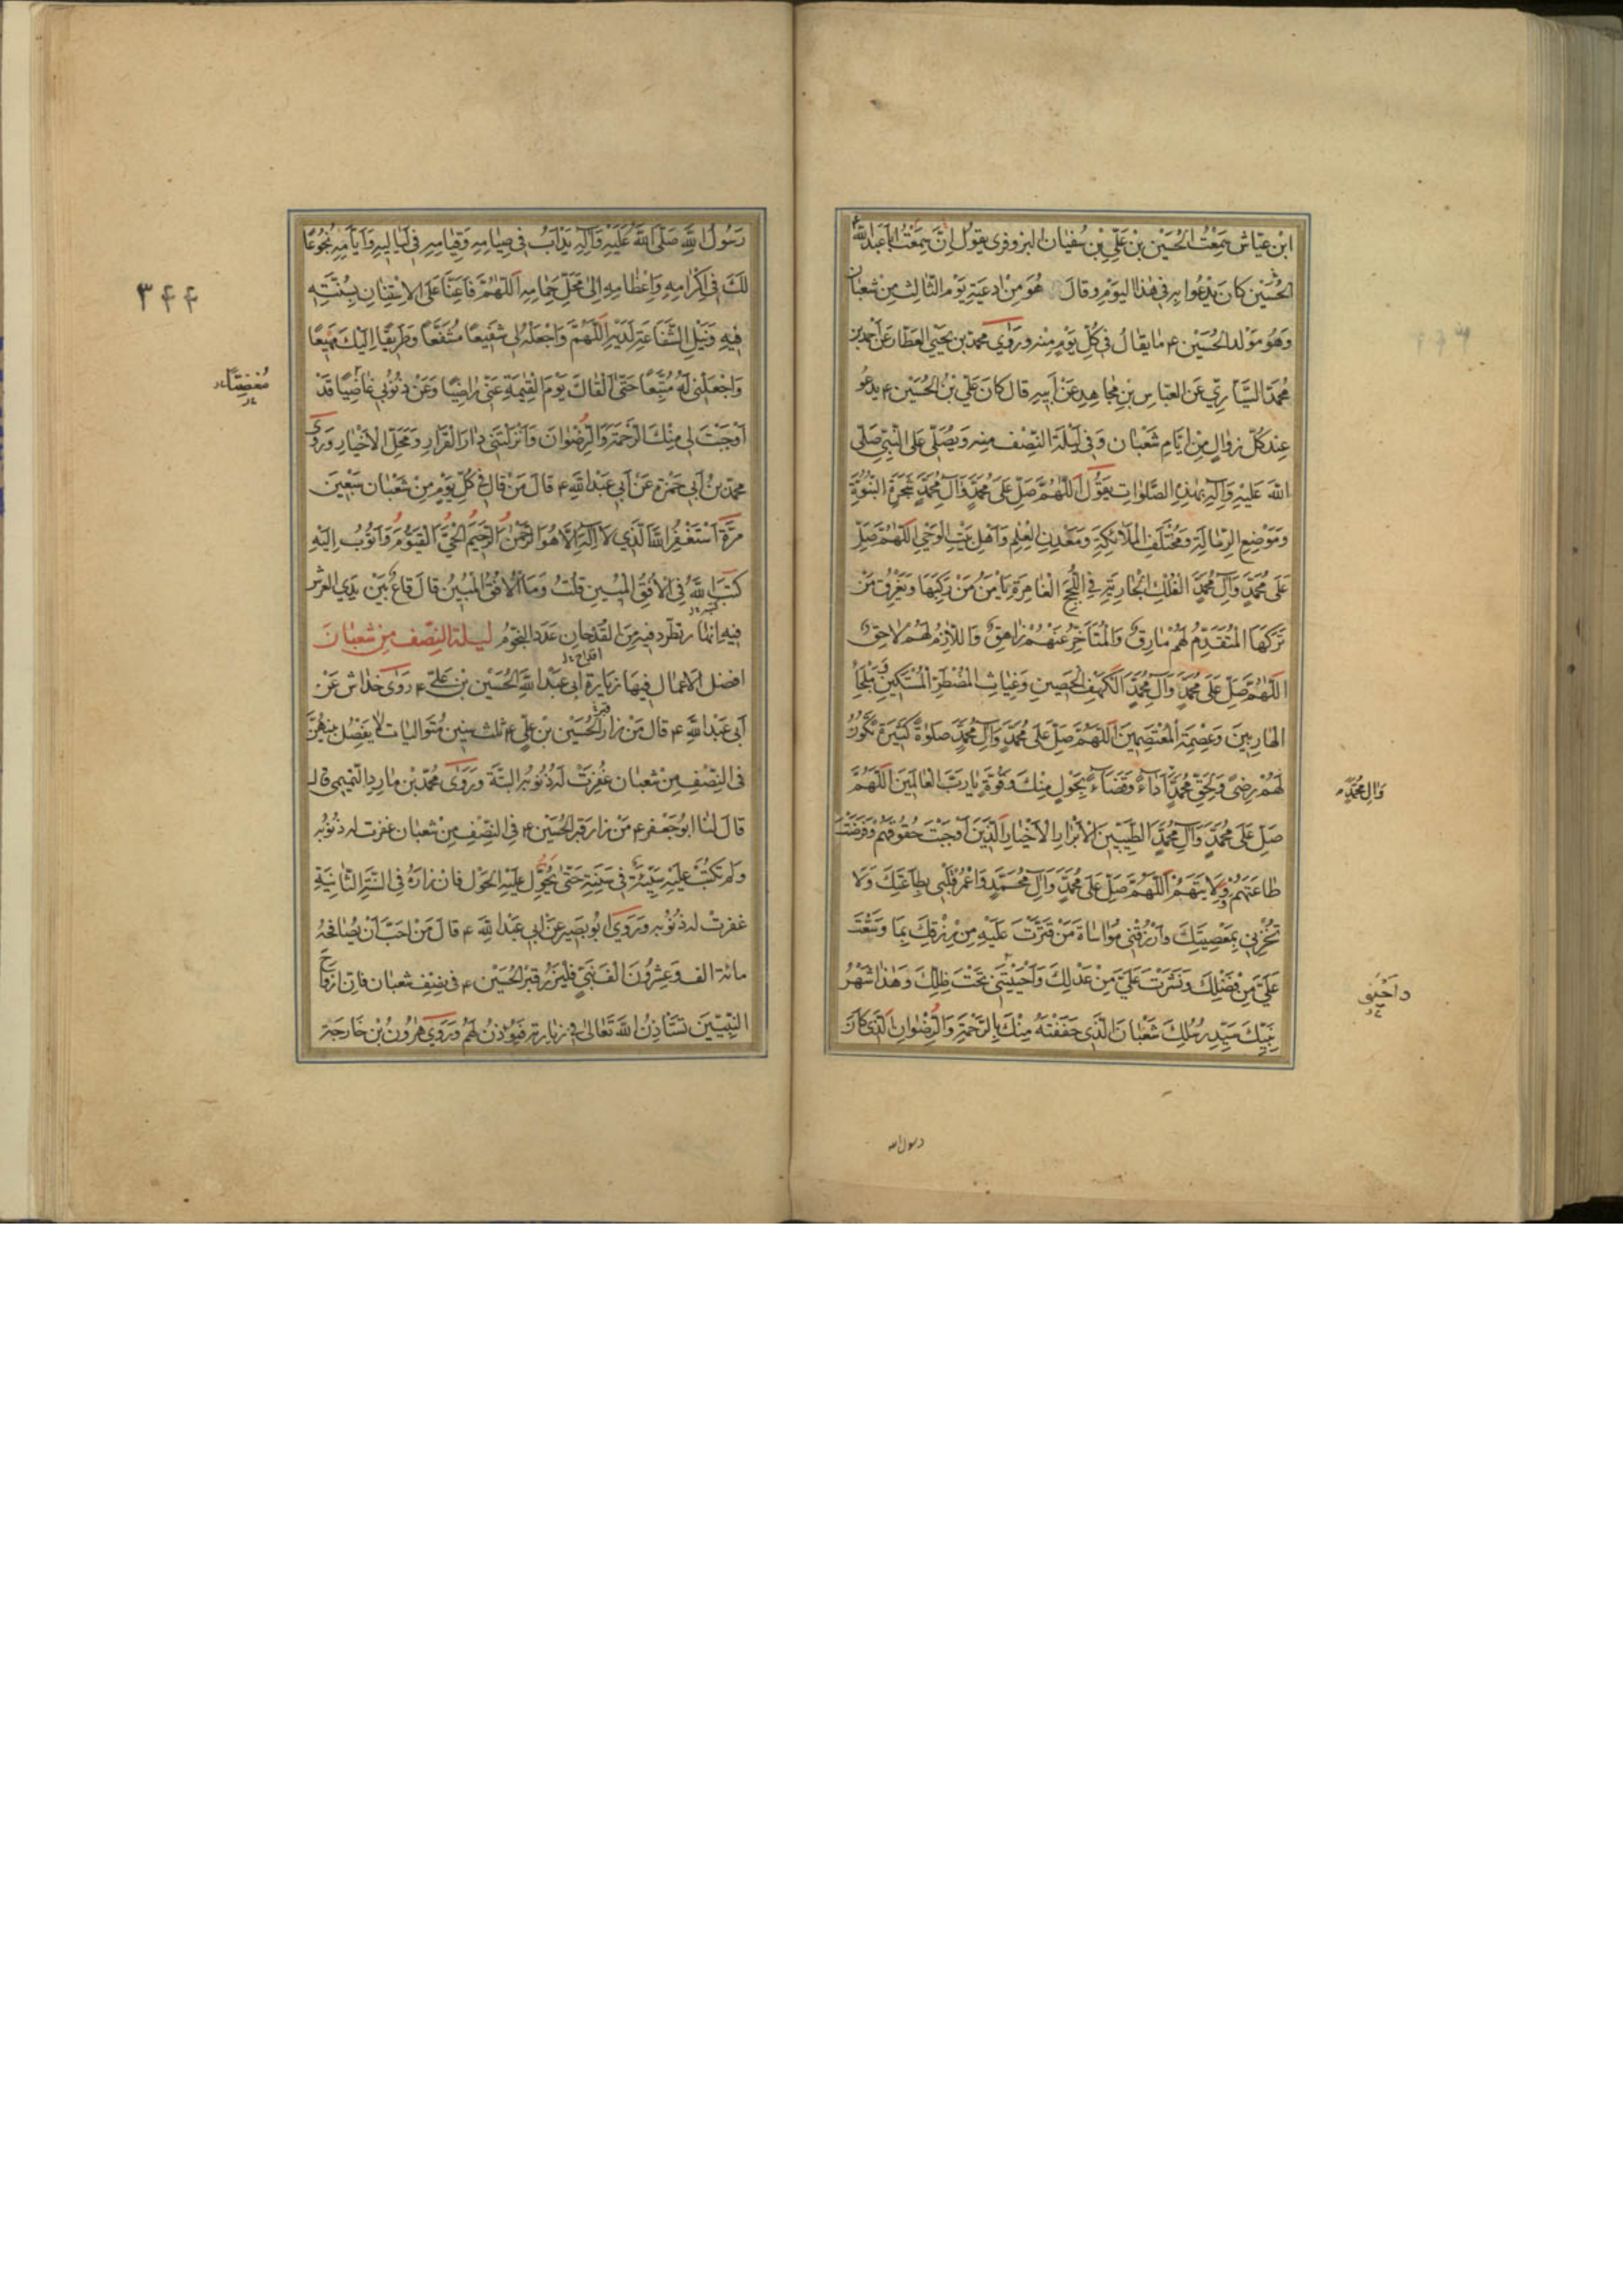 ابن عيّاش سَمِعْتُ الحُسَيْن بْن عَلِيّ بْنِ سُفْيان البزوفري يقول اِنّي سَمِعْتُ اَبا عَبدِ اللّٰه ع
الحُسَيْن كان يَدْعُوا بِهِ في هٰذا اليَوْمِ وقالَ هُوَ مِنْ اَدعِيَةِ يَوْمِ الثّالِث مِنْ شعبان
وَهُوَ مَوْلد الحُسَيْن ع مايقالُ في كُلِّ يَوْمٍ مِنْه وَرَوٰى محمّد بن يحيَى العَطّار عَنْ اَحمد بن
مُحَمّد السَّيّاريّ عَنِ العَبّاسِ بْنِ مُجاهِدٍ عَنْ اَبيهِ قالَ كانَ عَليّ بْنُ الحُسَيْن ع يَدْعُو
عِنْدَ كُلِّ زوالٍ مِنْ اَيّامِ شَعْبانَ وَفي لَيْلَةِ النّصْف مِنْه وَيُصَلّي عَلَى النَّبِيِّ صَلَّى
اللّٰهُ عَلَيْهِ وَآلِهِ بِهٰذِهِ الصَّلَواتِ يَقُولُ اَللّٰهُمَّ صَلِّ عَلىٰ مُحَمَّدٍ وَآلِ مُحَمَّدٍ شَجَرَةِ النُّبُوَّةِ
وَمَوْضِعِ الرِّسٰالَةِ وَمُخْتَلَفِ الْمَلآئِكَةِ وَمَعْدِنِ الْعِلْمِ وَاَهْلِ بَيْتِ الْوَحْيِ اَللّٰهُمَّ صَلِّ
عَلىٰ مُحَمَّدٍ وَآلِ مُحَمَّدٍ الْفُلْكِ الْجٰارِيَةِ فِي اللُّجَجِ الْغٰامِرَةِ يَاْمَنُ مَنْ رَكِبَهٰا وَيَغْرَقُ مَنْ
تَرَكَهَا الْمُتَقَدِّمُ لَهُمْ مٰارِقٌ وَالْمُتَاَخِّرُ عَنْهُمْ زٰاهِقٌ وَاللّازِمُ لَهُمْ لاحِقٌ
اَللّٰهُمَّ صَلِّ عَلىٰ مُحَمَّدٍ وَآلِ مُحَمَّدٍ الْكَهْفِ الْحَصينِ وَغِيٰاثِ الْمُضْطَرِّ الْمُسْتَكينِ وَمَلْجَأِ
الْهٰارِبينَ وَعِصْمَةِ الْمُعْتَصِمينَ اَللّٰهُمَّ صَلِّ عَلىٰ مُحَمَّدٍ وَآلِ مُحَمَّدٍ صَلوٰةً كَثيرَةً تَكُونُ
لَهُمْ رِضىً وَلِحَقِّ مُحَمَّدٍ اَدٰاءً وَقَضٰاءً بِحَوْلٍ مِنْكَ وَقُوَّةٍ يٰا رَبَّ الْعٰالَمينَ اَللّٰهُمَّ
وَآلِ مُحَمَّدٍ
صَلِّ عَلىٰ مُحَمَّدٍ وَآلِ مُحَمَّدٍ الطَّيِّبينَ الْاَبْرٰارِ الْاَخْيٰارِ الَّذينَ اَوْجَبْتَ حُقُوقَهُمْ وَفَرَضْتَ
طٰاعَتَهُمْ وَوِلايَتَهُمْ اَللّٰهُمَّ صَلِّ عَلىٰ مُحَمَّدٍ وَآلِ مُحَمَّدٍ وَاعْمُرْ قَلْبي بِطٰاعَتِكَ وَلا
تُخْزِني بِمَعْصِيَتِكَ وَارْزُقْني مُوٰاسٰاةَ مَنْ قَتَّرْتَ عَلَيْهِ مِنْ رِزْقِكَ بِمٰا وَسَّعْتَ
عَلَيَّ مِنْ فَضْلِكَ وَنَشَرْتَ عَلَيَّ مِنْ عَدْلِكَ وَاَحْيَيْتَني تَحْتَ ظِلِّكَ وَهٰذٰا شَهْرُ
وَاَحْيِني
نَبِيِّكَ سَيِّدِ رُسُلِكَ شَعْبٰانُ الَّذي حَفَفْتَهُ مِنْكَ بِالرَّحْمَةِ وَالرِّضْوٰانِ الَّذي كٰانَ
رسول الله
رَسُولُ اللّٰهِ صَلَّى اللّٰهُ عَلَيْهِ وَآلِهِ يَدْاَبُ في صِيٰامِهِ وَقِيٰامِهِ في لَيٰاليهِ وَاَيّٰامِهِ بُخُوعًا
لَكَ في اِكْرٰامِهِ وَاِعْظٰامِهِ اِلىٰ مَحَلِّ حِمٰامِهِ اَللّٰهُمَّ فَاَعِنّٰا عَلَى الْاِسْتِنٰانِ بِسُنَّتِهِ
٣۴۴
فيهِ وَنَيْلِ الشَّفٰاعَةِ لَدَيْهِ اَللّٰهُمَّ وَاجْعَلْهُ لي شَفيعًا مُشَفَّعًا وَطَريقًا اِلَيْكَ مَهْيَعًا
وَاجْعَلْني لَهُ مُتَّبِعًا حَتّىٰ اَلْقٰاكَ يَوْمَ الْقِيٰمَةِ عَنّي رٰاضِيًا وَعَنْ ذُنُوبي غٰاضِيًا قَدْ
مُغْضِيًا
اَوْجَبْتَ لي مِنْكَ الرَّحْمَةَ وَالرِّضْوٰانَ وَاَنْزَلْتَني دٰارَ الْقَرٰارِ وَمَحَلَّ الْاَخْيٰارِ وَرَوٰى
محمّد بنُ اَبي حَمْزة عَنْ اَبي عَبْدِ اللّٰهِ ع قالَ مَنْ قالَ في كُلِّ يَوْمٍ مِنْ شَعْبانَ سَبْعينَ
مَرَّةً اَسْتَغْفِرُ اللّٰهَ الَّذي لا اِلٰهَ اِلّا هُوَ الرَّحْمٰنُ الرَّحيمُ الْحَيُّ الْقَيُّومُ وَاَتُوبُ اِلَيْهِ
كَتَبَهُ اللّٰهُ فِي الْاُفُقِ الْمُبينِ قُلْتُ وَمَا الْاُفُقُ الْمُبينُ قالَ قاعٌ بَيْنَ يَدَيِ العَرْشِ
فيهِ اَنْهار تَطَّرِد فيهِ مِنَ القدْحان عَدَدَ النّجُومِ لَيلة النِّصف مِنْ شعبانَ
افضل الاعمال فيها زيارة اَبي عَبْدِ اللّٰهِ الحُسَيْن بْن عَليّ ع رَوٰى خداش عَنْ
اَبي عَبْدِ اللّٰهِ ع قالَ مَنْ زارَ قبر الحُسَيْن بْن عليّ ع ثلث سِنين مُتَواليات لا يفصل بينهُنَّ
في النِّصْفِ مِنْ شعبان غُفِرَتْ لَهُ ذُنُوبُهُ البتّةَ وَرَوٰى مُحَمّد بن مارِد التّميميّ قالَ
قالَ لَنا ابو جَعفَر ع مَنْ زارَ قبر الحُسَيْن ع في النِّصْفِ مِنْ شعبان غفرت له ذنوبه
وَلَمْ تكتَبْ عَلَيْهِ سَيِّئَةٌ في سَنَتِهِ حَتّىٰ يَحُولَ عَلَيْهِ الحَول فان زارَهُ في السَّنَةِ الثّانِيَةِ
غفرت له ذنوبه وَرَوٰى ابُو بَصير عَنْ اَبي عَبْدِ اللّٰهِ ع قالَ مَنْ اَحَبَّ اَنْ يُصافحَهُ
مائة الف وَعِشْرُونَ الْف نَبِيّ فَلْيَزُرْ قبرَ الحُسَيْن ع في نِصْفِ شعبان فاِنّ اَرْواحَ
النَّبِيّينَ تَسْتَأذِنُ اللّٰهَ تَعالىٰ في زيارته فَيُؤْذَنُ لَهُمْ وَرَوٰى هٰرُون بْن خارِجَة